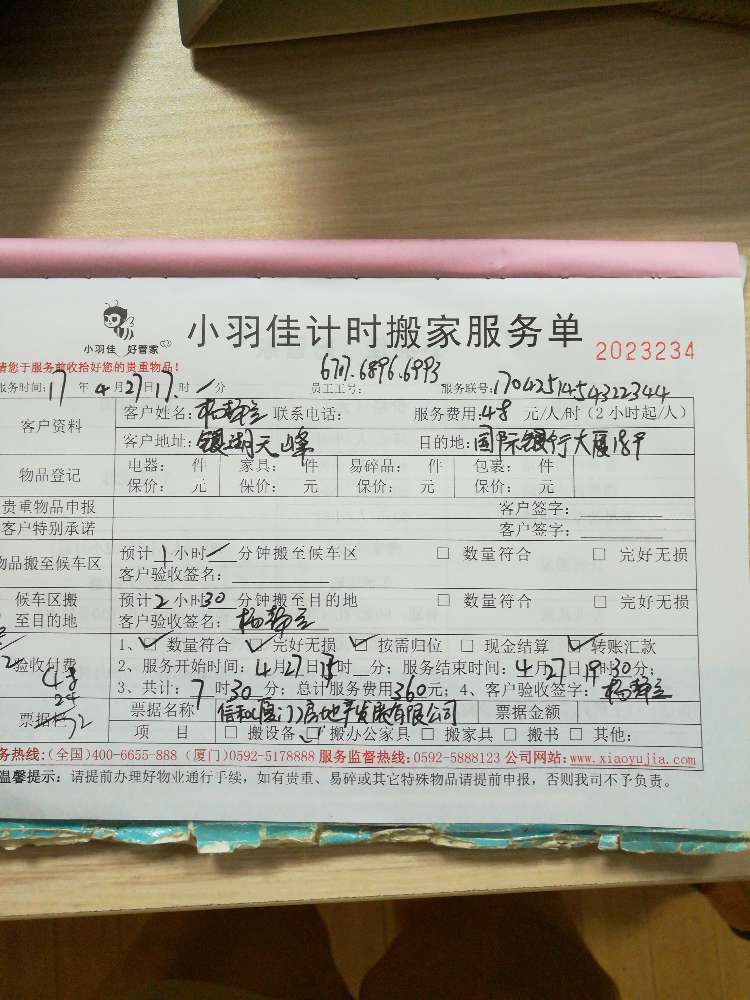 小羽佳 好管家
小羽佳计时搬家服务单
2023234
请您于服务前收拾好您的贵重物品！
6717.6896.6993
服务时间:17年4月27日17时/分 员工工号: 服务联号:1704251454322344
客户资料
客户姓名:杨静 联系电话: 服务费用:48元/人/时(2小时起/人)
客户地址:银湖天峰 目的地:国际银行大厦18F
物品登记
电器: 件 家具: 件 易碎品: 件 包裹: 件
保价: 元 保价: 元 保价: 元 保价: 元
贵重物品申报 客户签字:
客户特别承诺 客户签字:
物品搬至候车区
预计1小时/分钟搬至候车区 □ 数量符合 □ 完好无损
客户验收签名:
候车区搬至目的地
预计2小时30分钟搬至目的地 □ 数量符合 □ 完好无损
客户验收签名:杨静
验收付费
1、☑ 数量符合 ☑ 完好无损 ☑ 按需归位 □ 现金结算 ☑ 转账汇款
2、服务开始时间:4月27日 时 分; 服务结束时间:4月27日19时30分;
3、共计:7时30分; 总计服务费用360元; 4、客户验收签字:杨静
48
24
72
票据栏
票据名称 信和(厦门)房地产发展有限公司 票据金额
项 目 □ 搬设备 ☑ 搬办公家具 □ 搬家具 □ 搬书 □ 其他:
务热线:(全国)400-6655-888 (厦门)0592-5178888 服务监督热线:0592-5888123 公司网站:www.xiaoyujia.com
温馨提示: 请提前办理好物业通行手续，如有贵重、易碎或其它特殊物品请提前申报，否则我司不予负责。